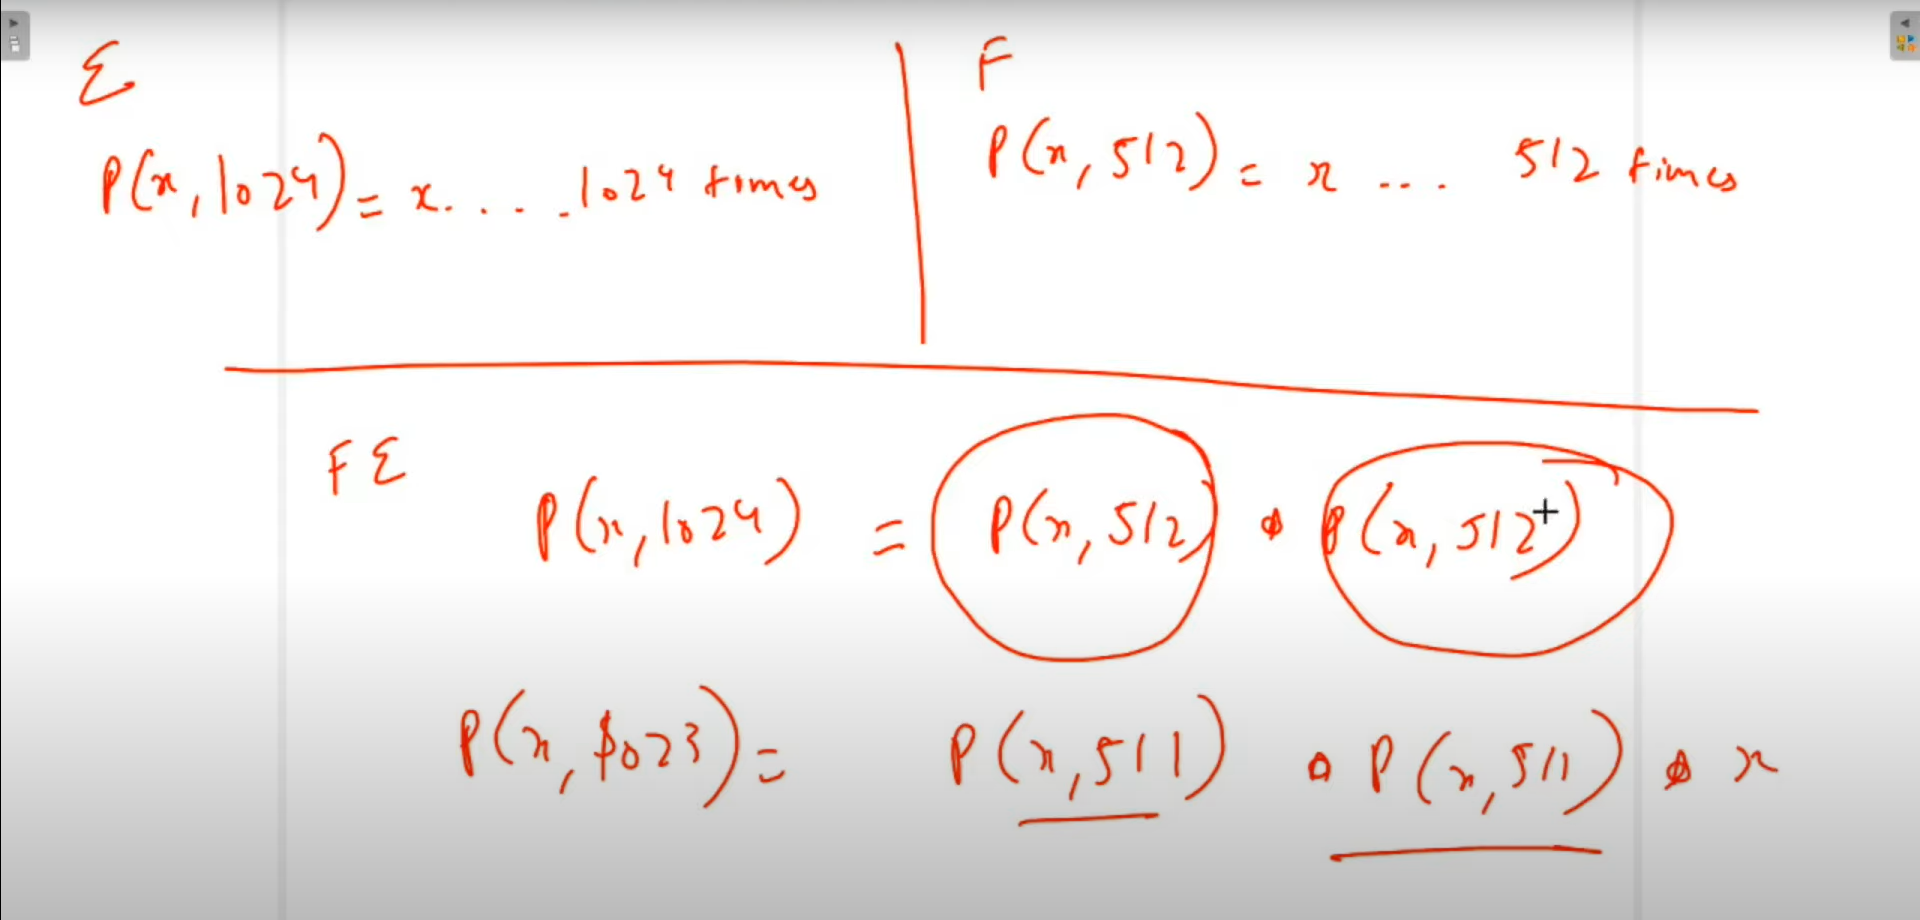 Ɛ
P(x, 1024) = x. . . . . 1024 times
F
P(x, 512) = x ... 512 times
FƐ
P(x, 1024) = P(x, 512) * P(x, 512)
P(x, 1023) = P(x, 511) * P(x, 511) * x